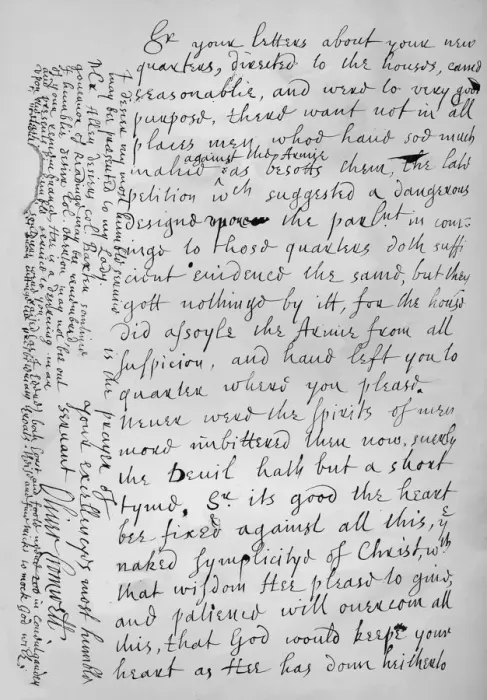 Sr your letters about your new
quarters, directed to the houses, came
seasonablie, and were to very good
purpose, there want not in all
places men whoe have soe much
against the Armie
malice as besotts them, the late
petition wch suggested a dangerous
designe the parlnt in com-
inge to those quarters doth suffi
cient evidence the same, but they
gott nothinge by itt, for the house
did assoyle the Armie from all
suspicion, and have left you to
quarter where you please.
Never were the spirits of men
more imbittered then now, suerly
the Devil hath but a short
tyme, Sr its good the heart
bee fixed against all this, ye
naked symplicitye of Christ, wth
that wisdom Hee please to give,
and patience will overcom all
this, that God would keepe your
heart as Hee has donn heitherto
is the prayer of
your excellencys most humble
servant
Oliver Cromwell
I desire my most humble service
may bee presented to my Lady
Adj Allen desires col Baxter sometime
governor of Readinge may be remembred
I humblie desire Col. Overton may not be out
of your remembrance Hee is a deservinge man
and presents his humble service to you